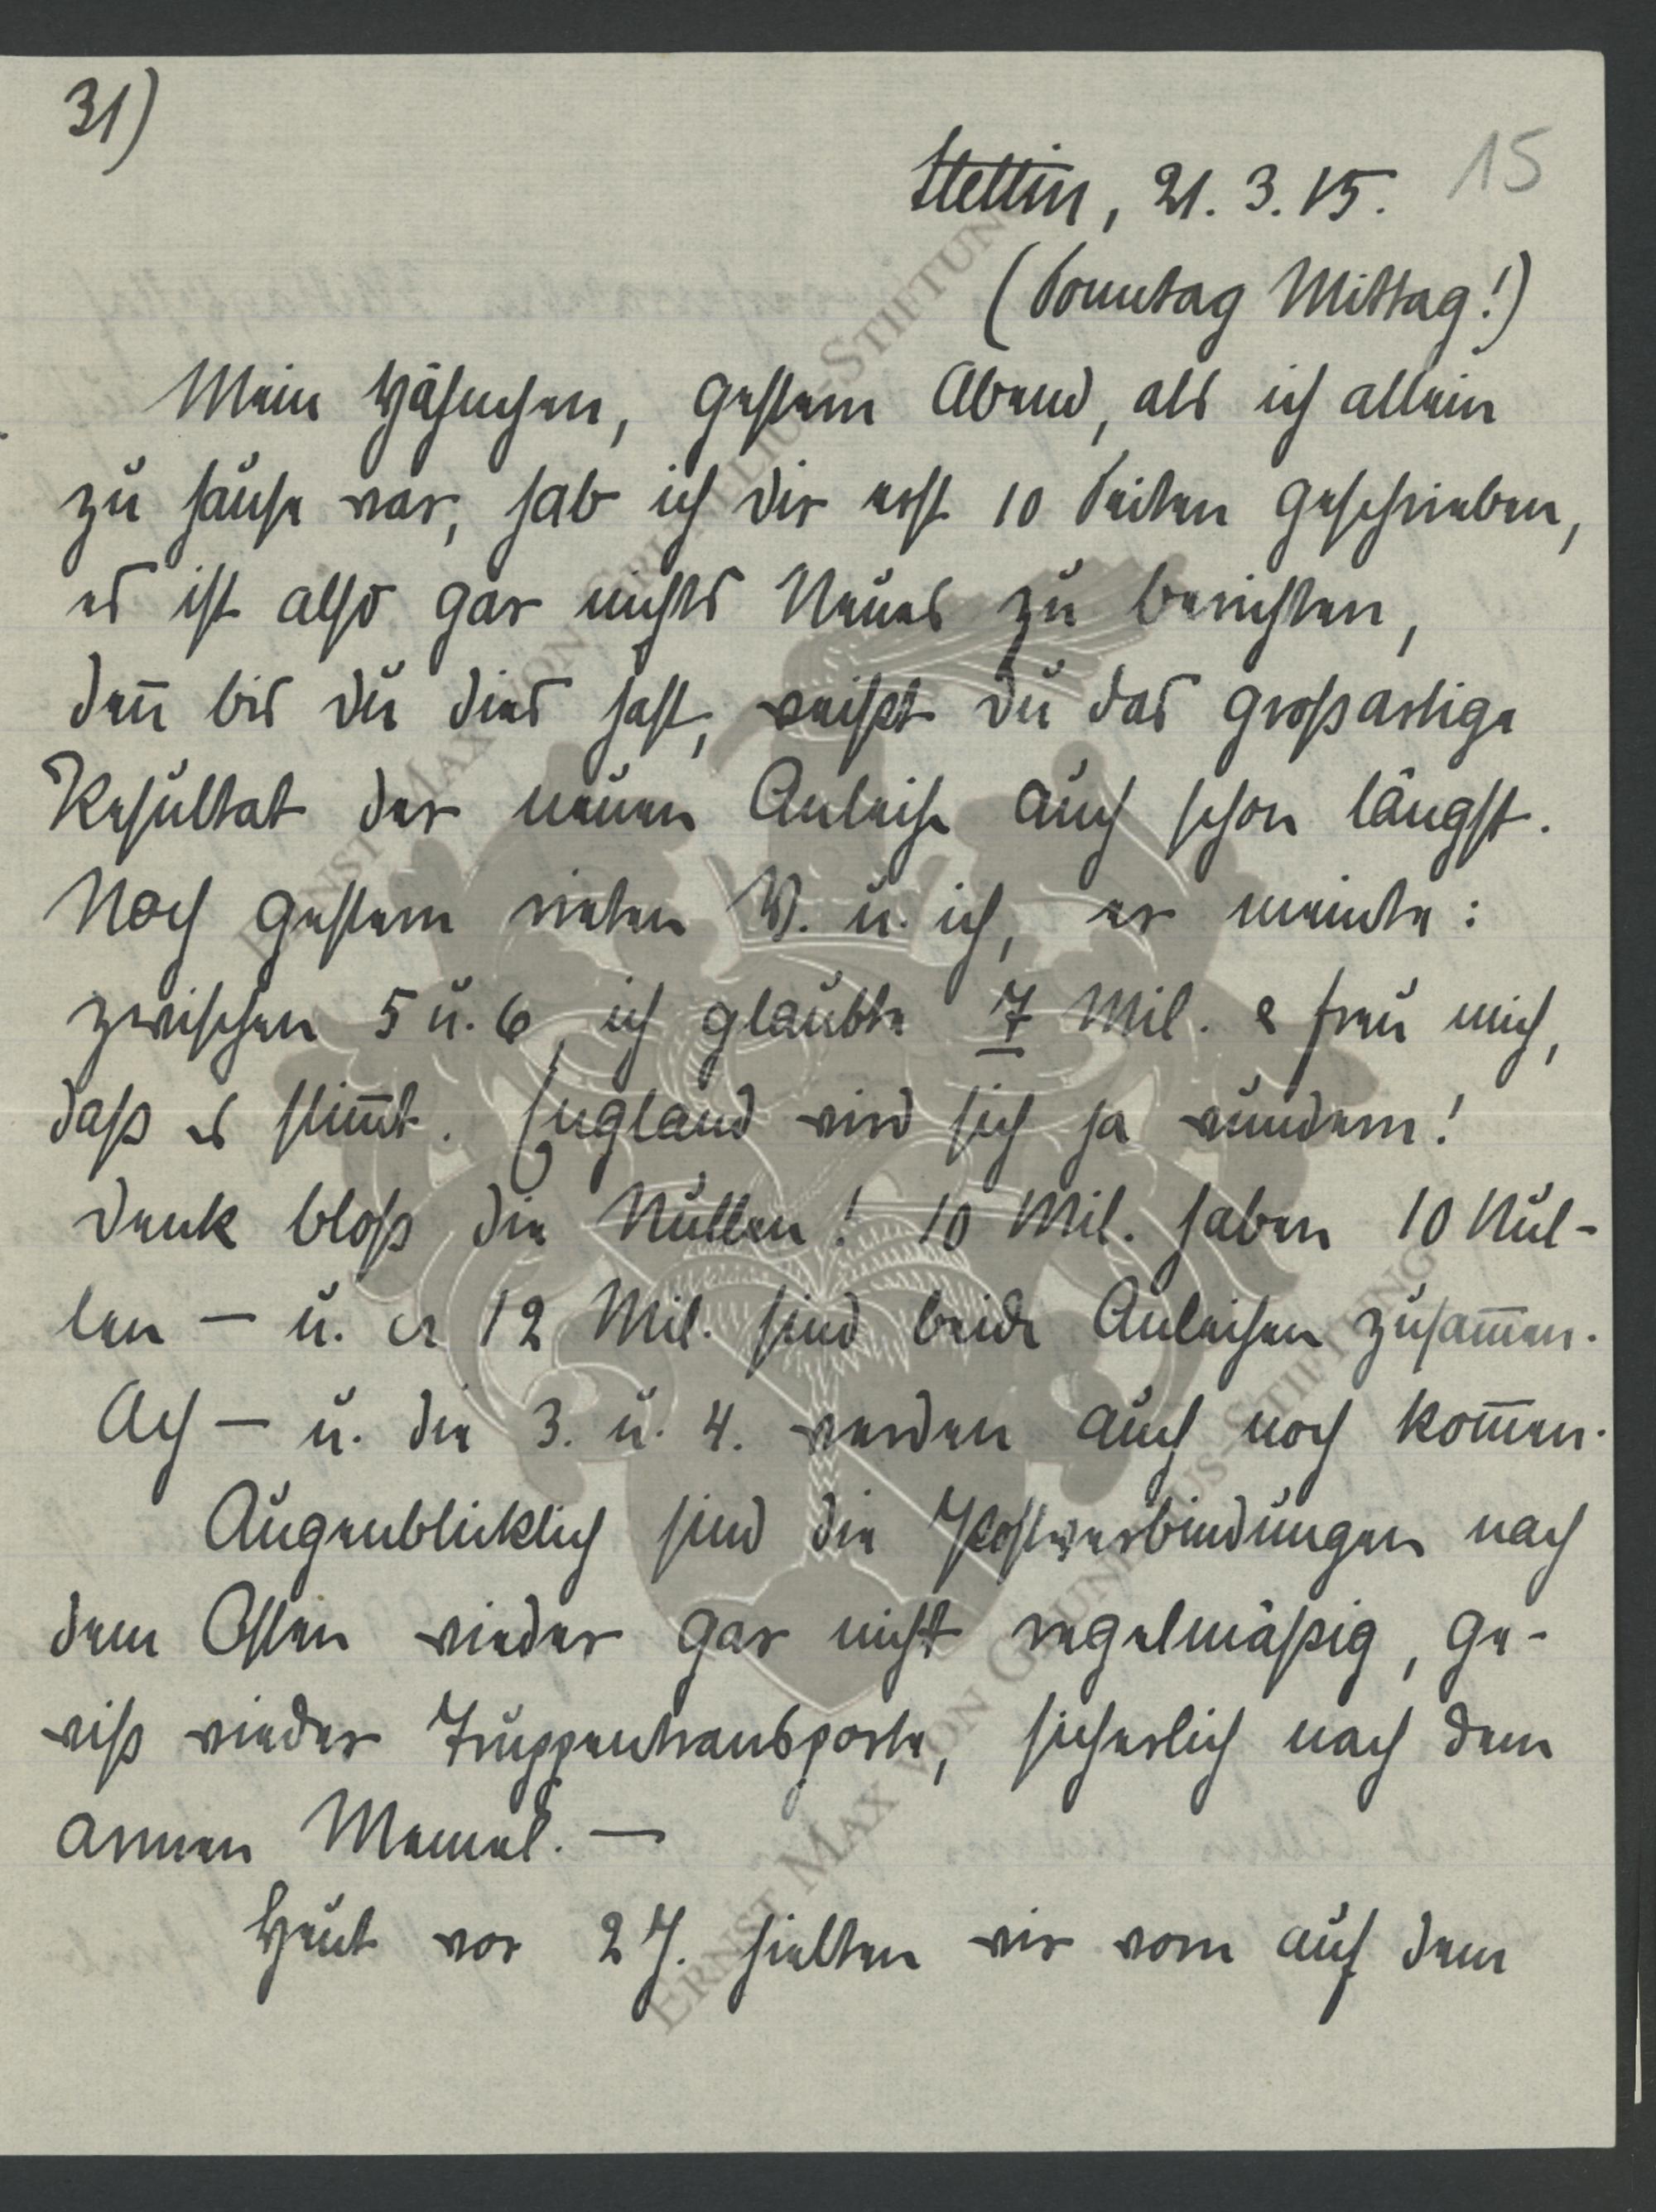 31)
15
Stettin, 21. 3. 15.
(Sonntag Mittag!)
Mein Häschen, gestern Abend, als ich allein
zu hause war, hab ich dir erst 10 Seiten geschrieben,
es ist also gar nichts Neues zu berichten,
den̄ bis du dies hast, weißt du das großartige
Resultat der neuen Anleihe auch schon längst.
Noch gestern rieten W. u. ich, er meinte:
zwischen 5 u. 6, ich glaubte 7 Mil. & freu mich,
daß es stim̄t. England wird sich ja wundern!
Denk bloß die Nullen! 10 Mil. haben 10 Nul-
len — u. cr 12 Mil. sind beide Anleihen zusam̄en.
Ach — u. die 3. u. 4. werden auch noch kom̄en.
Augenblicklich sind die Postverbindungen nach
dem Osten wieder gar nicht regelmäßig, ge-
wiß wieder Truppentransporte, sicherlich nach dem
armen Memel. —
Heut vor 2 J. hielten wir vorn auf dem
ERNST MAX VON GRUNELIUS-STIFTUNG
ERNST MAX VON GRUNELIUS-STIFTUNG